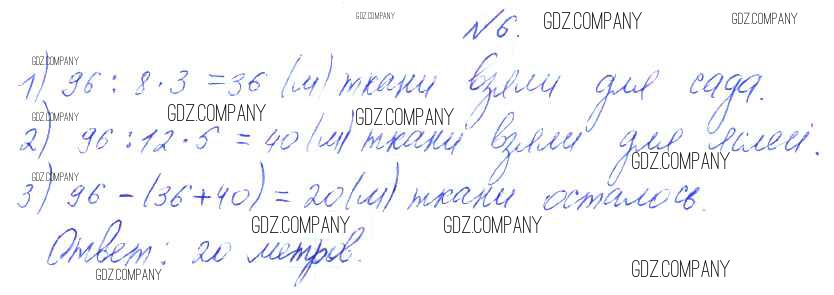 GDZ.COMPANY
№6. GDZ.COMPANY GDZ.COMPANY
GDZ.COMPANY
1) 96 : 8 · 3 = 36 (м) ткани взяли для сада.
GDZ.COMPANY GDZ.COMPANY GDZ.COMPANY
2) 96 : 12 · 5 = 40 (м) ткани взяли для яслей.
GDZ.COMPANY
GDZ.COMPANY
3) 96 - (36 + 40) = 20 (м) ткани осталось.
GDZ.COMPANY GDZ.COMPANY
Ответ: 20 метров.
GDZ.COMPANY GDZ.COMPANY